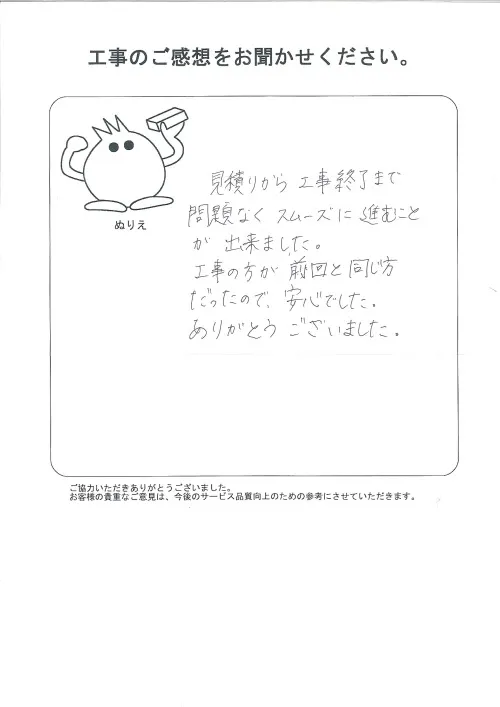 工事のご感想をお聞かせください。
ぬりえ
見積りから工事終了まで
問題なくスムーズに進むこと
が出来ました。
工事の方が前回と同じ方
だったので、安心でした。
ありがとうございました。
ご協力いただきありがとうございました。
お客様の貴重なご意見は、今後のサービス品質向上のための参考にさせていただきます。